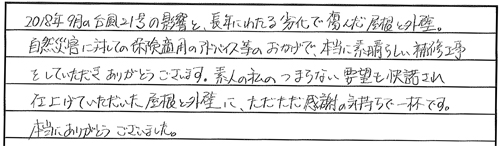 2018年9月の台風21号の影響と、長年にわたる劣化で傷んだ屋根と外壁。
自然災害に対しての保険適用のアドバイス等のおかげで、本当に素晴らしい補修工事
をしていただきありがとうございます。素人の私のつまらない要望も快諾され
仕上げていただいた屋根と外壁に、ただただ感謝の気持ちで一杯です。
本当にありがとうございました。